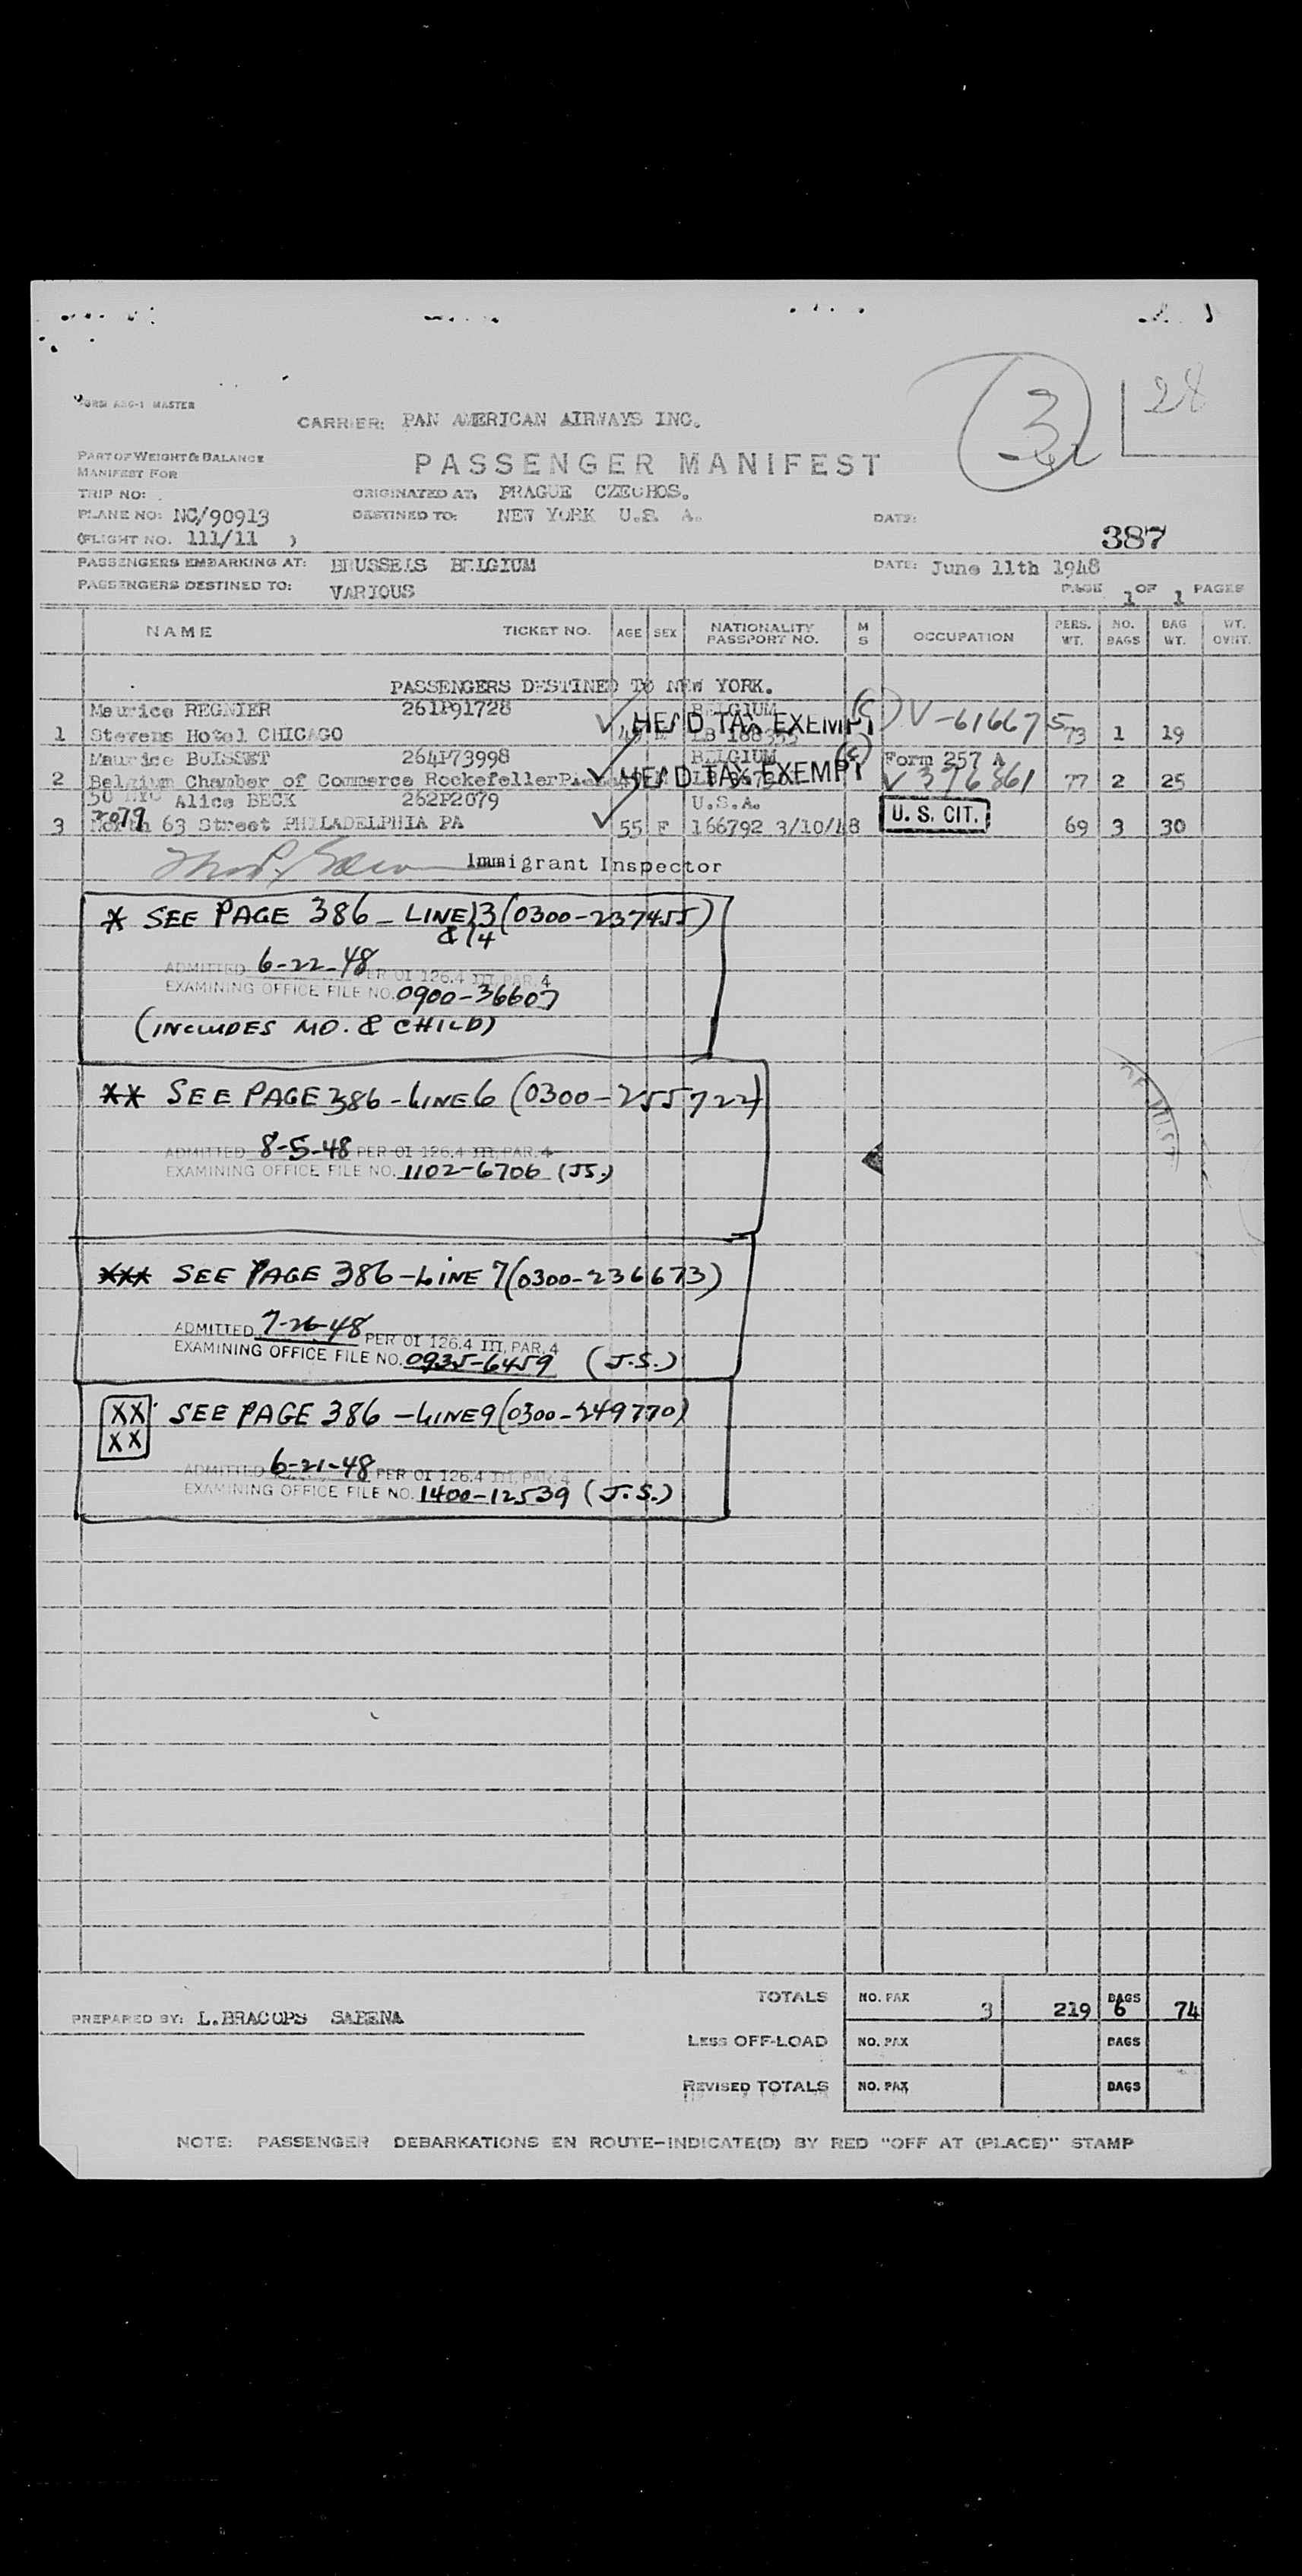 FORM ABC-1 MASTER
3
28
CARRIER: PAN AMERICAN AIRWAYS INC.
PART OF WEIGHT & BALANCE
MANIFEST FOR
PASSENGER MANIFEST
TRIP NO:
ORIGINATED AT: PRAGUE CZECHOS.
PLANE NO: NC/90913
DESTINED TO: NEW YORK U.S. A.
DATE:
(FLIGHT NO. 111/11 )
387
PASSENGERS EMBARKING AT: BRUSSELS BELGIUM
DATE: June 11th 1948
PASSENGERS DESTINED TO: VARIOUS
PAGE 1 OF 1 PAGES
NAME TICKET NO. AGE SEX NATIONALITY PASSPORT NO. M S OCCUPATION PERS. WT. NO. BAGS BAG WT. WT. OVHT.
PASSENGERS DESTINED TO NEW YORK.
Maurice REGNIER 261P91728 BELGIUM (C) V-616675
1 Stevens Hotel CHICAGO HEAD TAX EXEMPT 73 1 19
Maurice BUISSET 264P73998 BELGIUM (C) Form 257 A
2 Belgium Chamber of Commerce Rockefeller HEAD TAX EXEMPT V 376861 77 2 25
50 NYC Alice BECK 262P2079 U.S.A.
2079
3 North 63 Street PHILADELPHIA PA 55 F 166792 3/10/48 U. S. CIT. 69 3 30
Immigrant Inspector
* SEE PAGE 386 - LINE 13 (0300-237455)
& 14
ADMITTED 6-22-48 PER OI 126.4 III, PAR. 4
EXAMINING OFFICE FILE NO. 0900-36607
(INCLUDES MO. & CHILD)
** SEE PAGE 386 - LINE 6 (0300-255722)
ADMITTED 8-5-48 PER OI 126.4 III, PAR. 4
EXAMINING OFFICE FILE NO. 1102-6706 (J.S.)
*** SEE PAGE 386 - LINE 7 (0300-236673)
ADMITTED 7-26-48 PER OI 126.4 III, PAR. 4
EXAMINING OFFICE FILE NO. 0935-6459 (J.S.)
XX SEE PAGE 386 - LINE 9 (0300-249770)
XX
ADMITTED 6-21-48 PER OI 126.4 III, PAR. 4
EXAMINING OFFICE FILE NO. 1400-12539 (J.S.)
TOTALS NO. PAX 3 219 BAGS 6 74
PREPARED BY: L.BRACOPS SABENA
LESS OFF-LOAD NO. PAX BAGS
REVISED TOTALS NO. PAX BAGS
NOTE: PASSENGER DEBARKATIONS EN ROUTE-INDICATE(D) BY RED "OFF AT (PLACE)" STAMP